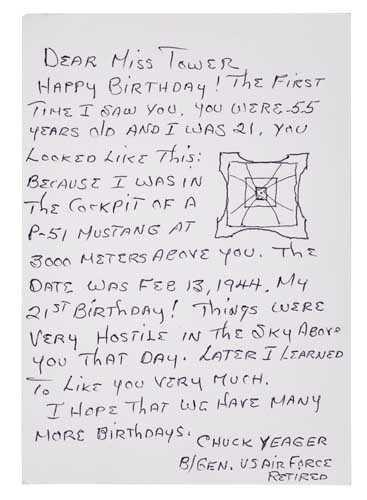 DEAR MISS TOWER
HAPPY BIRTHDAY! THE FIRST
TIME I SAW YOU, YOU WERE 55
YEARS OLD AND I WAS 21. YOU
LOOKED LIKE THIS:
BECAUSE I WAS IN
THE COCKPIT OF A
P-51 MUSTANG AT
3000 METERS ABOVE YOU. THE
DATE WAS FEB 13, 1944, MY
21ST BIRTHDAY! THINGS WERE
VERY HOSTILE IN THE SKY ABOVE
YOU THAT DAY. LATER I LEARNED
TO LIKE YOU VERY MUCH.
I HOPE THAT WE HAVE MANY
MORE BIRTHDAYS.
CHUCK YEAGER
B/GEN. US AIR FORCE
RETIRED